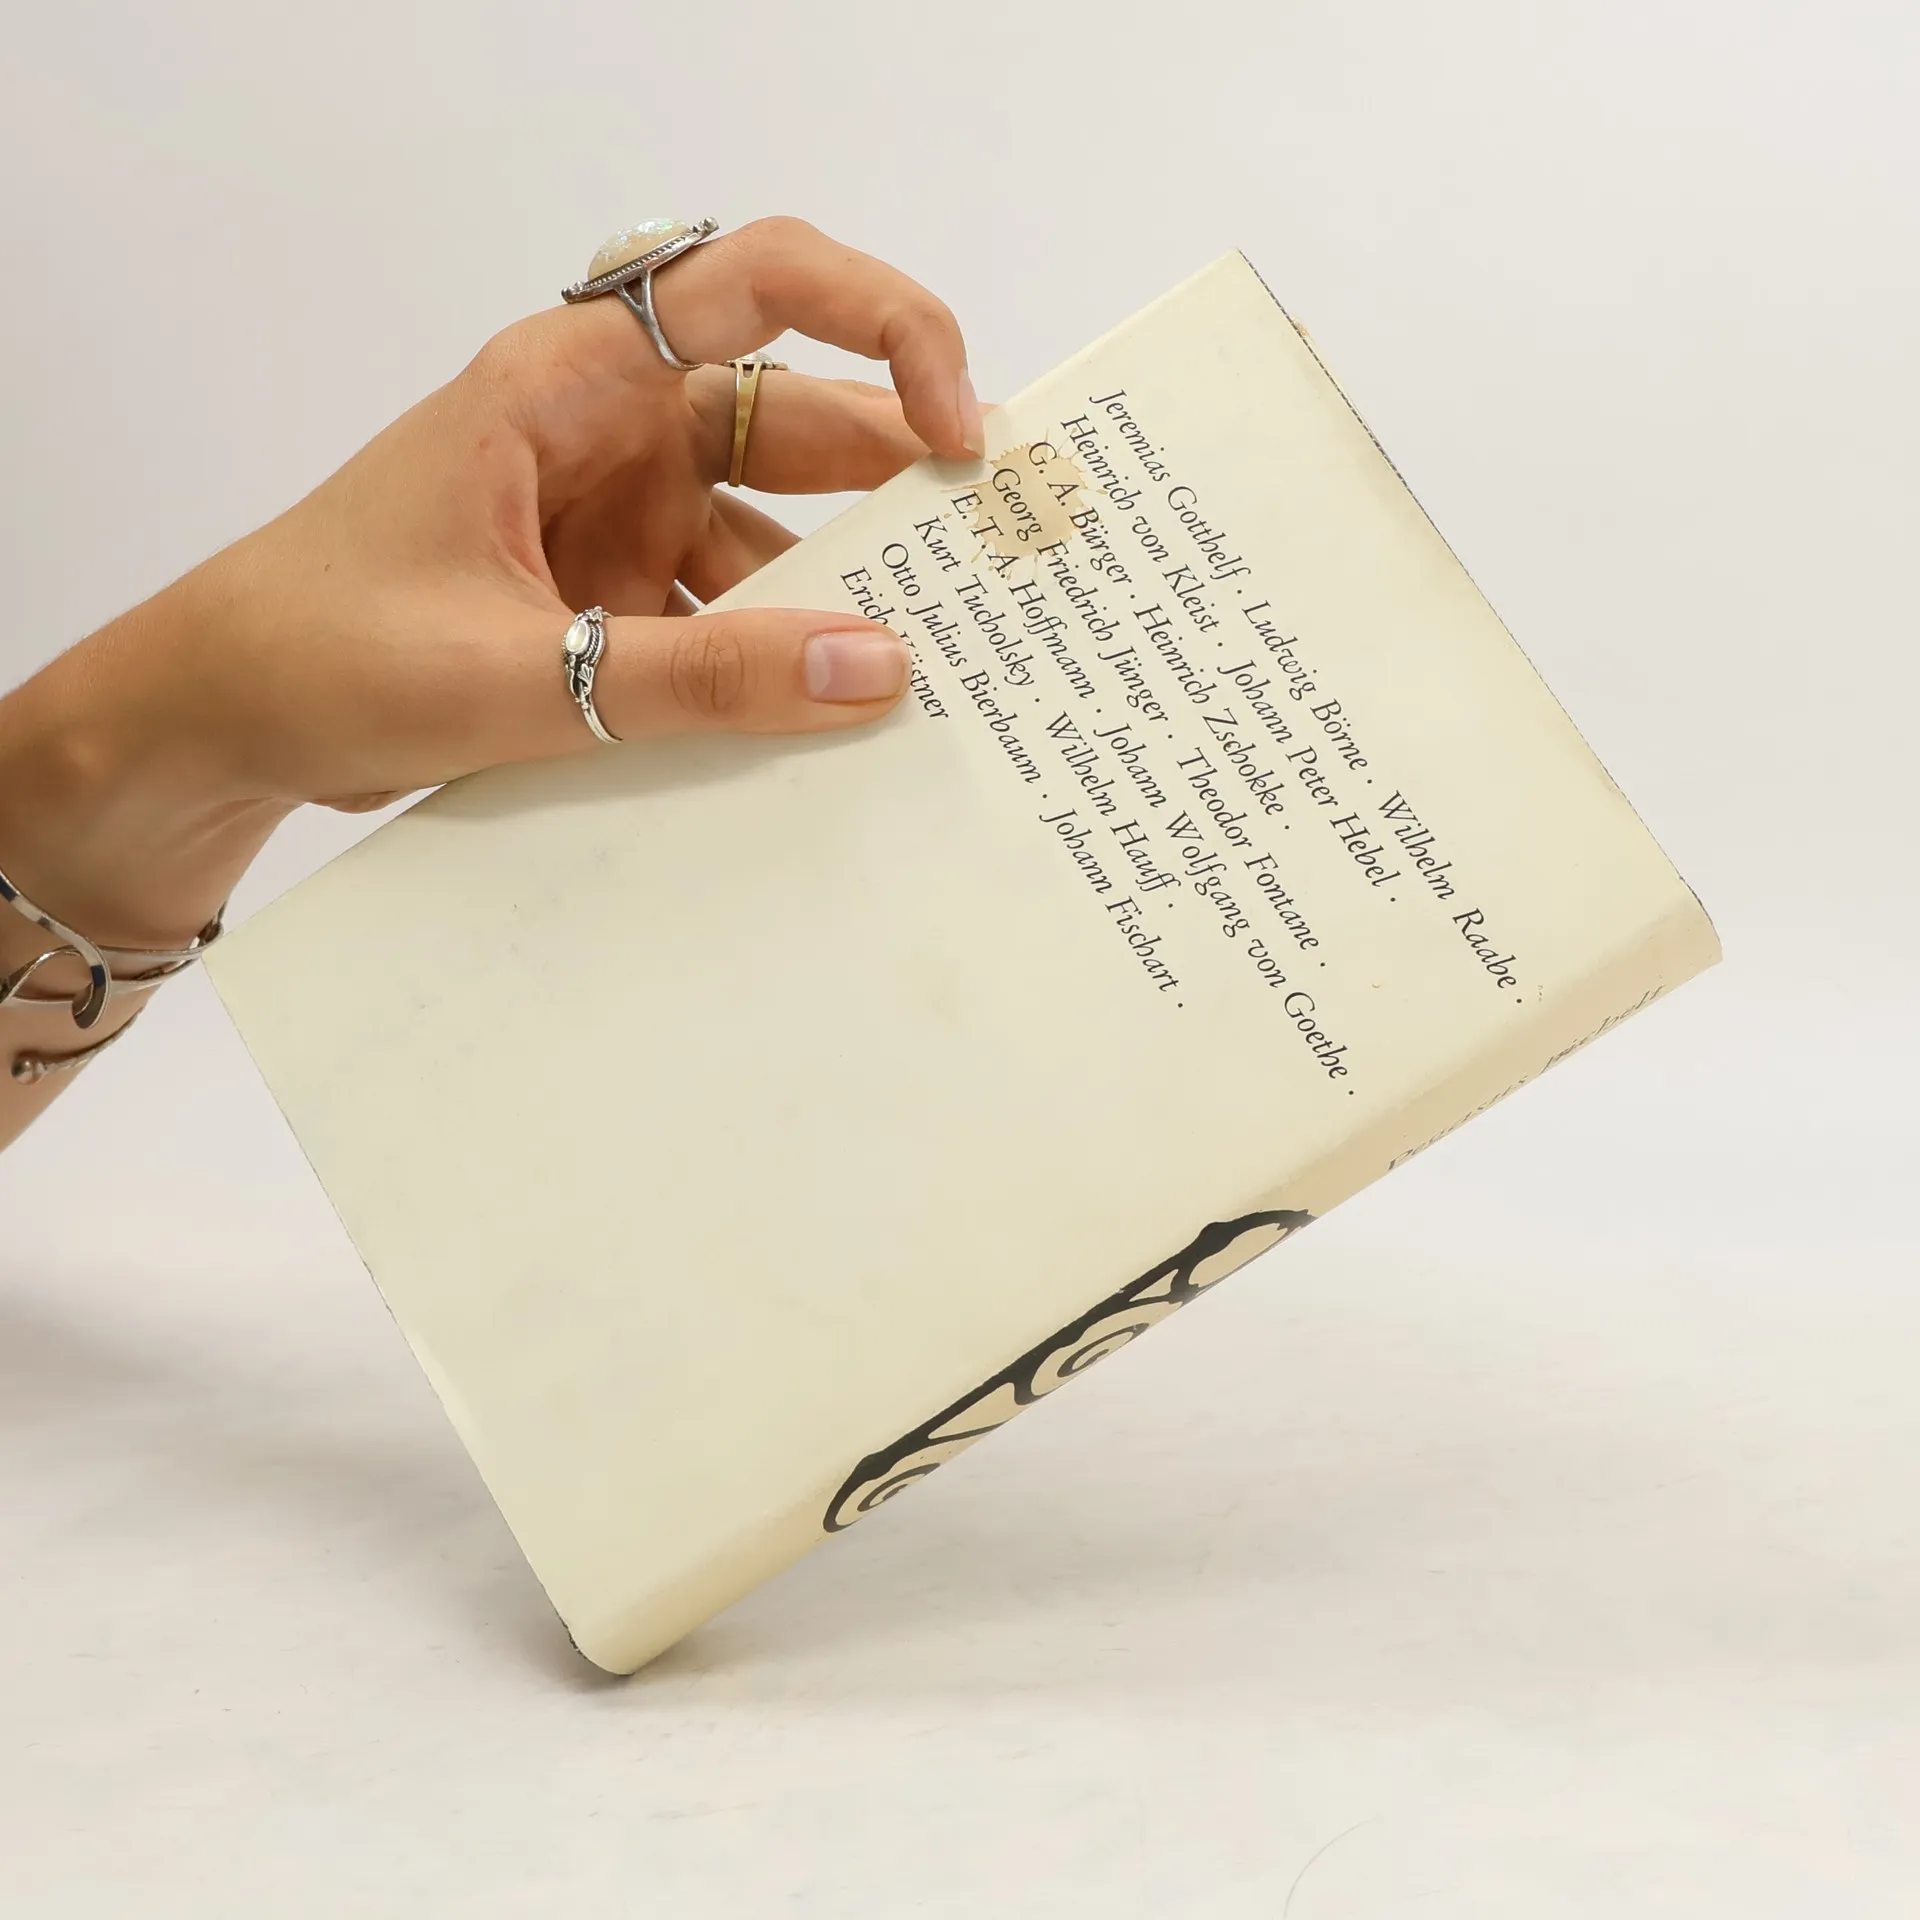 Jeremias Gotthelf · Ludwig Börne · Wilhelm Raabe ·
Heinrich von Kleist · Johann Peter Hebel ·
G. A. Bürger · Heinrich Zschokke ·
Georg Friedrich Jünger · Theodor Fontane ·
E. T. A. Hoffmann · Johann Wolfgang von Goethe ·
Kurt Tucholsky · Wilhelm Hauff ·
Otto Julius Bierbaum · Johann Fischart ·
Erich Kästner